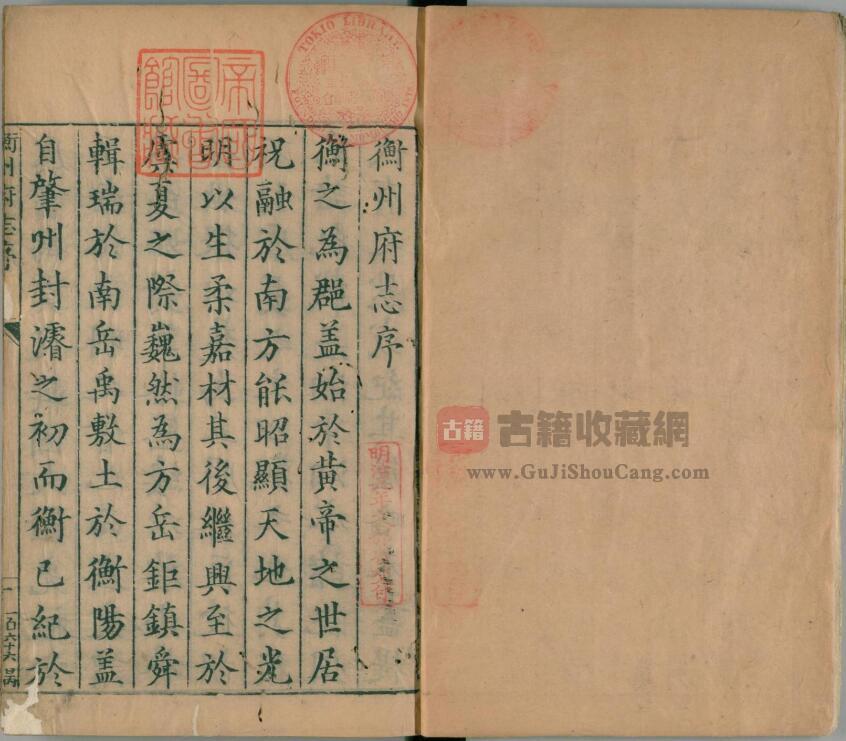 衡州府志序
衡之為郡盖始於黄帝之世居
祝融於南方能昭顯天地之光
明以生柔嘉材其後繼興至於
虞夏之際巍然為方岳鉅鎮舜
輯瑞於南岳禹敷土於衡陽盖
自肇州封濬之初而衡已紀於
衡州府志序
一
一百六十六
TOKIO LIBRARY
帝国圖書館藏
明治
古籍
古籍收藏網
www.GuJiShouCang.com